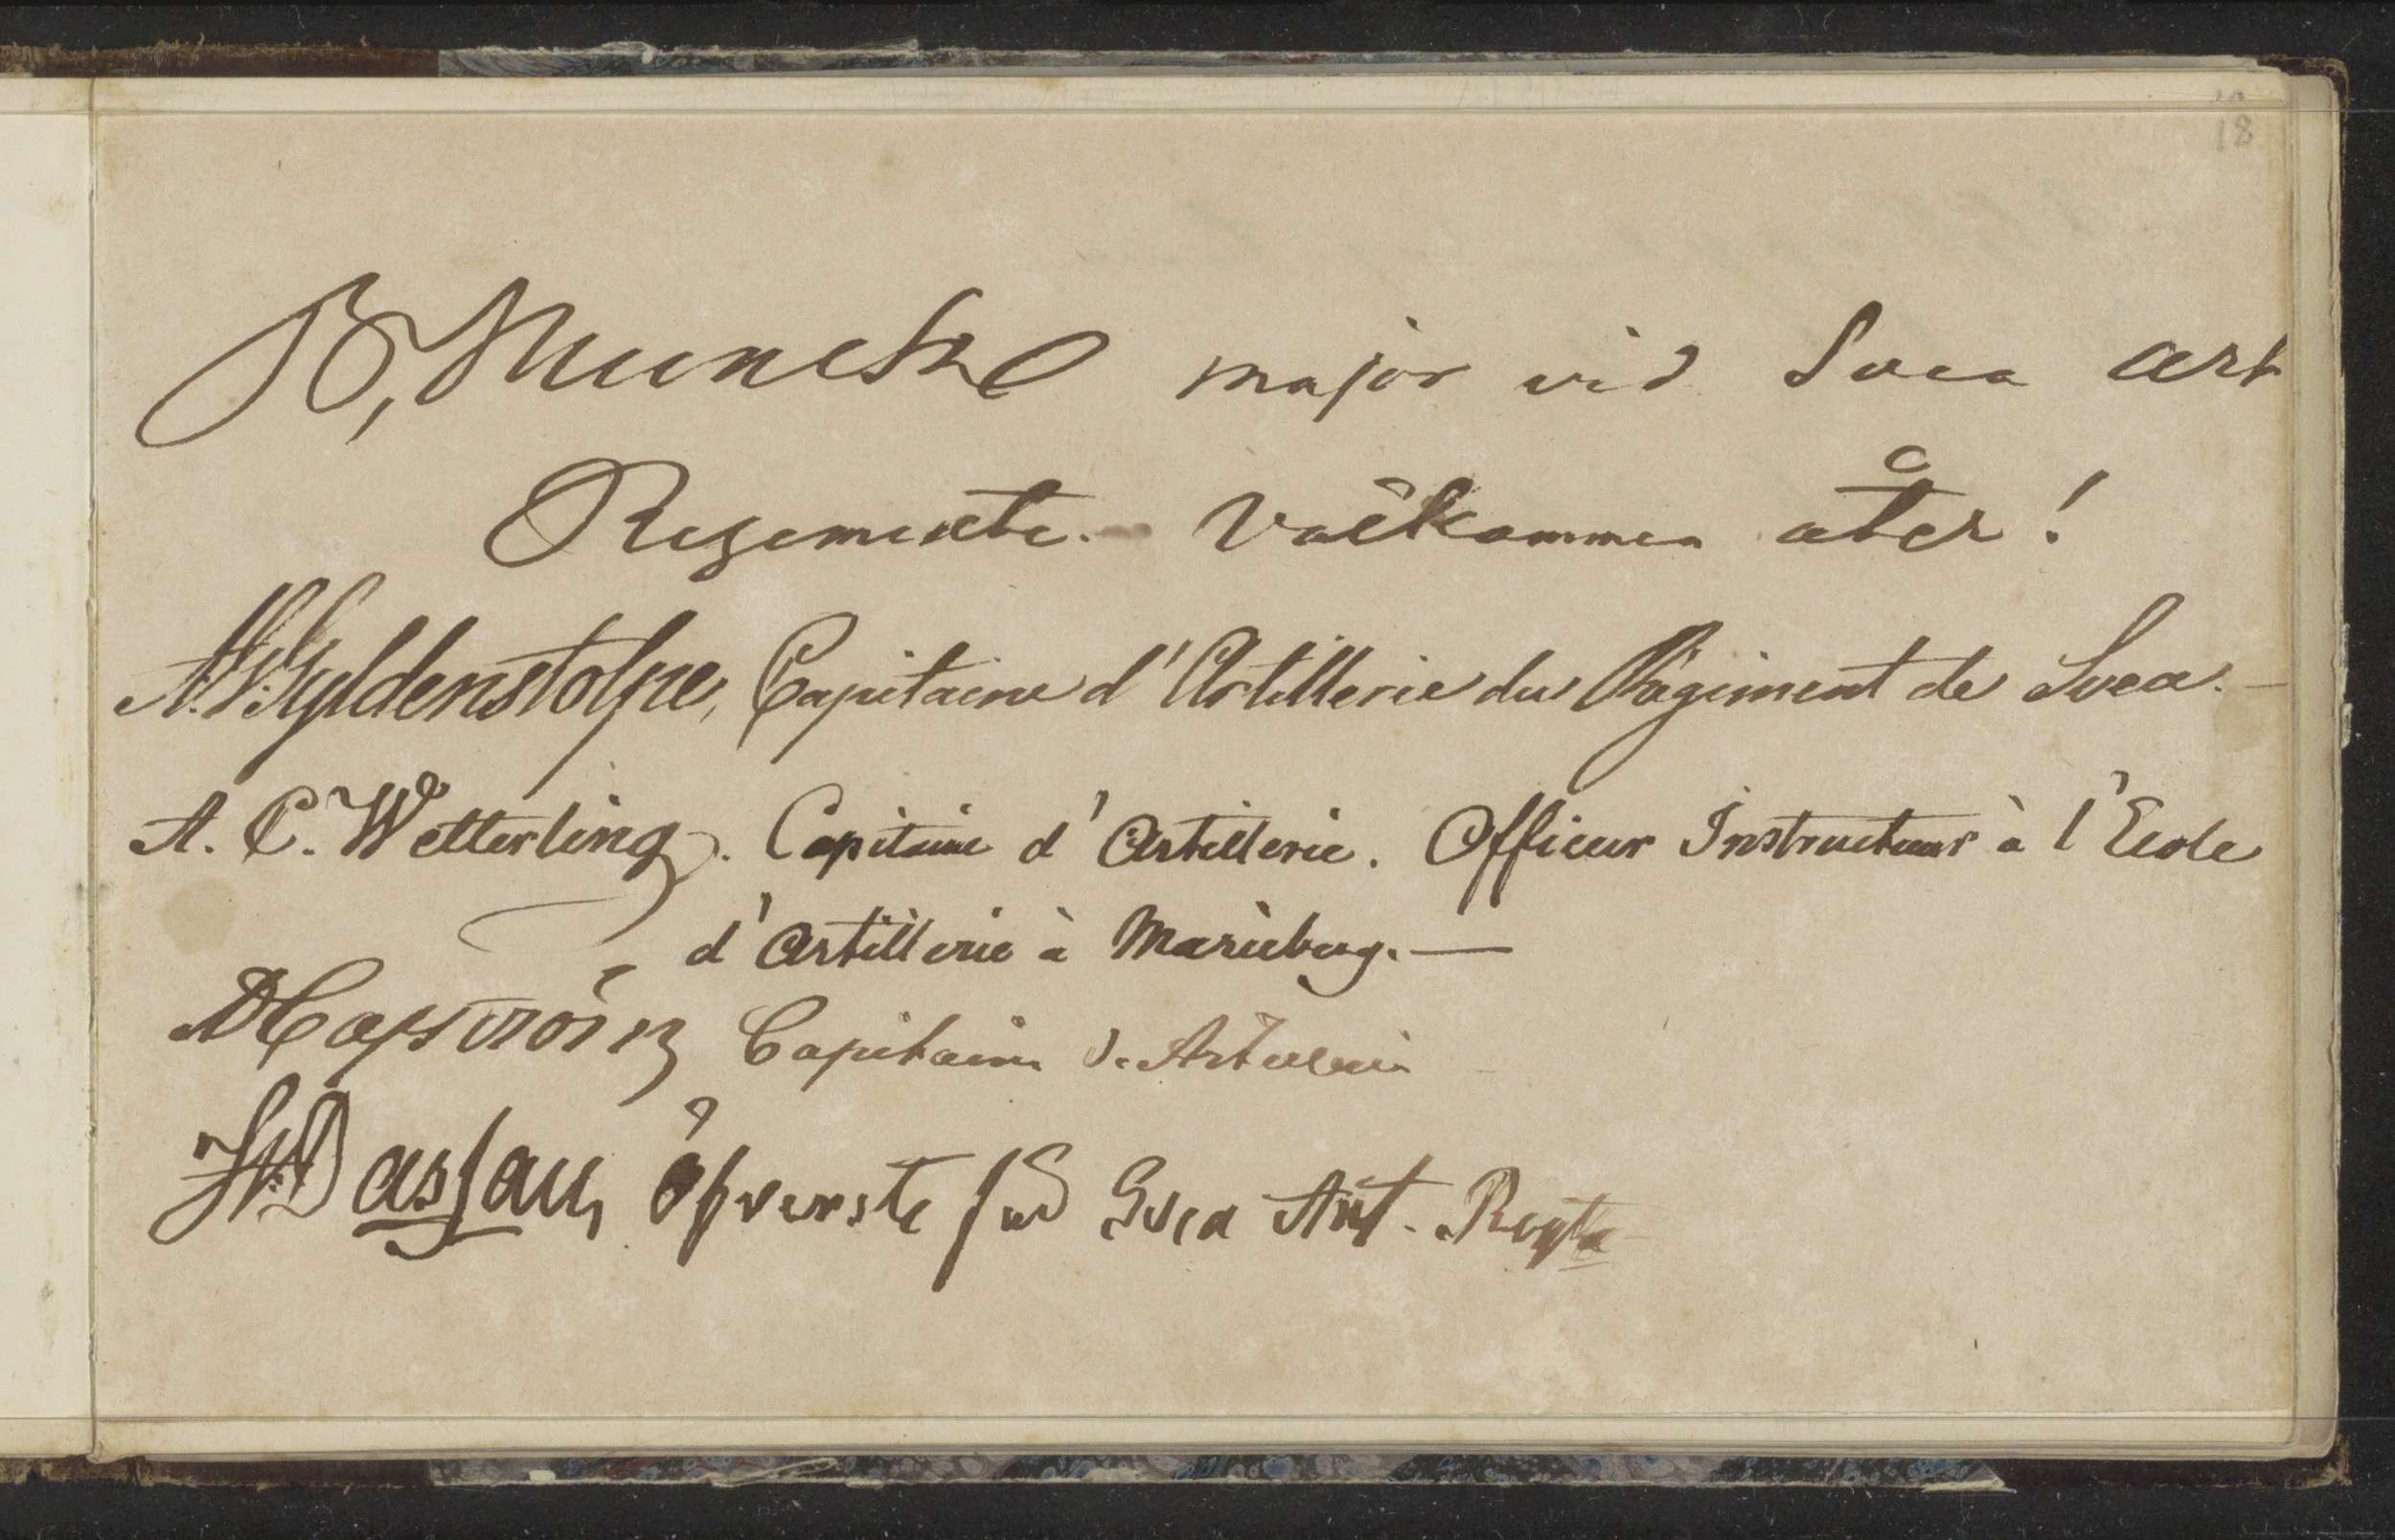 18
B, Munck major vid Svea art
Regemente. Välkommen åter!
A. W. Gyldenstolpe, Capitaine d'Artillerie du Régiment de Svea.—
A. C. Wetterling. Capitaine d'Artillerie. Officier Instructeur à l'Ecole
d'Artillerie à Marieberg.—
Capitaine d'Artillerie
öfverste för Svea Art. Regte